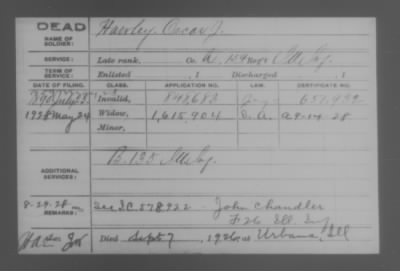 DEAD
NAME OF SOLDIER: Hawley, Oscar J.
SERVICE: Late rank, Co. A, 149 Reg't Ill. Inf.
TERM OF SERVICE: Enlisted , 1 Discharged , 1
DATE OF FILING. CLASS. APPLICATION NO. LAW. CERTIFICATE NO.
1890 July Invalid, 848,683
1928 May 24 Widow, 1,615,904 D. A. A 9-14-28
Minor,
ADDITIONAL SERVICES: B. 135 Ill. Inf.
8-29-28 See I.C. 578922 - John Chandler
REMARKS: F 26 Ill. Inf.
Died Sept 7, 1926 at Urbana, Ill